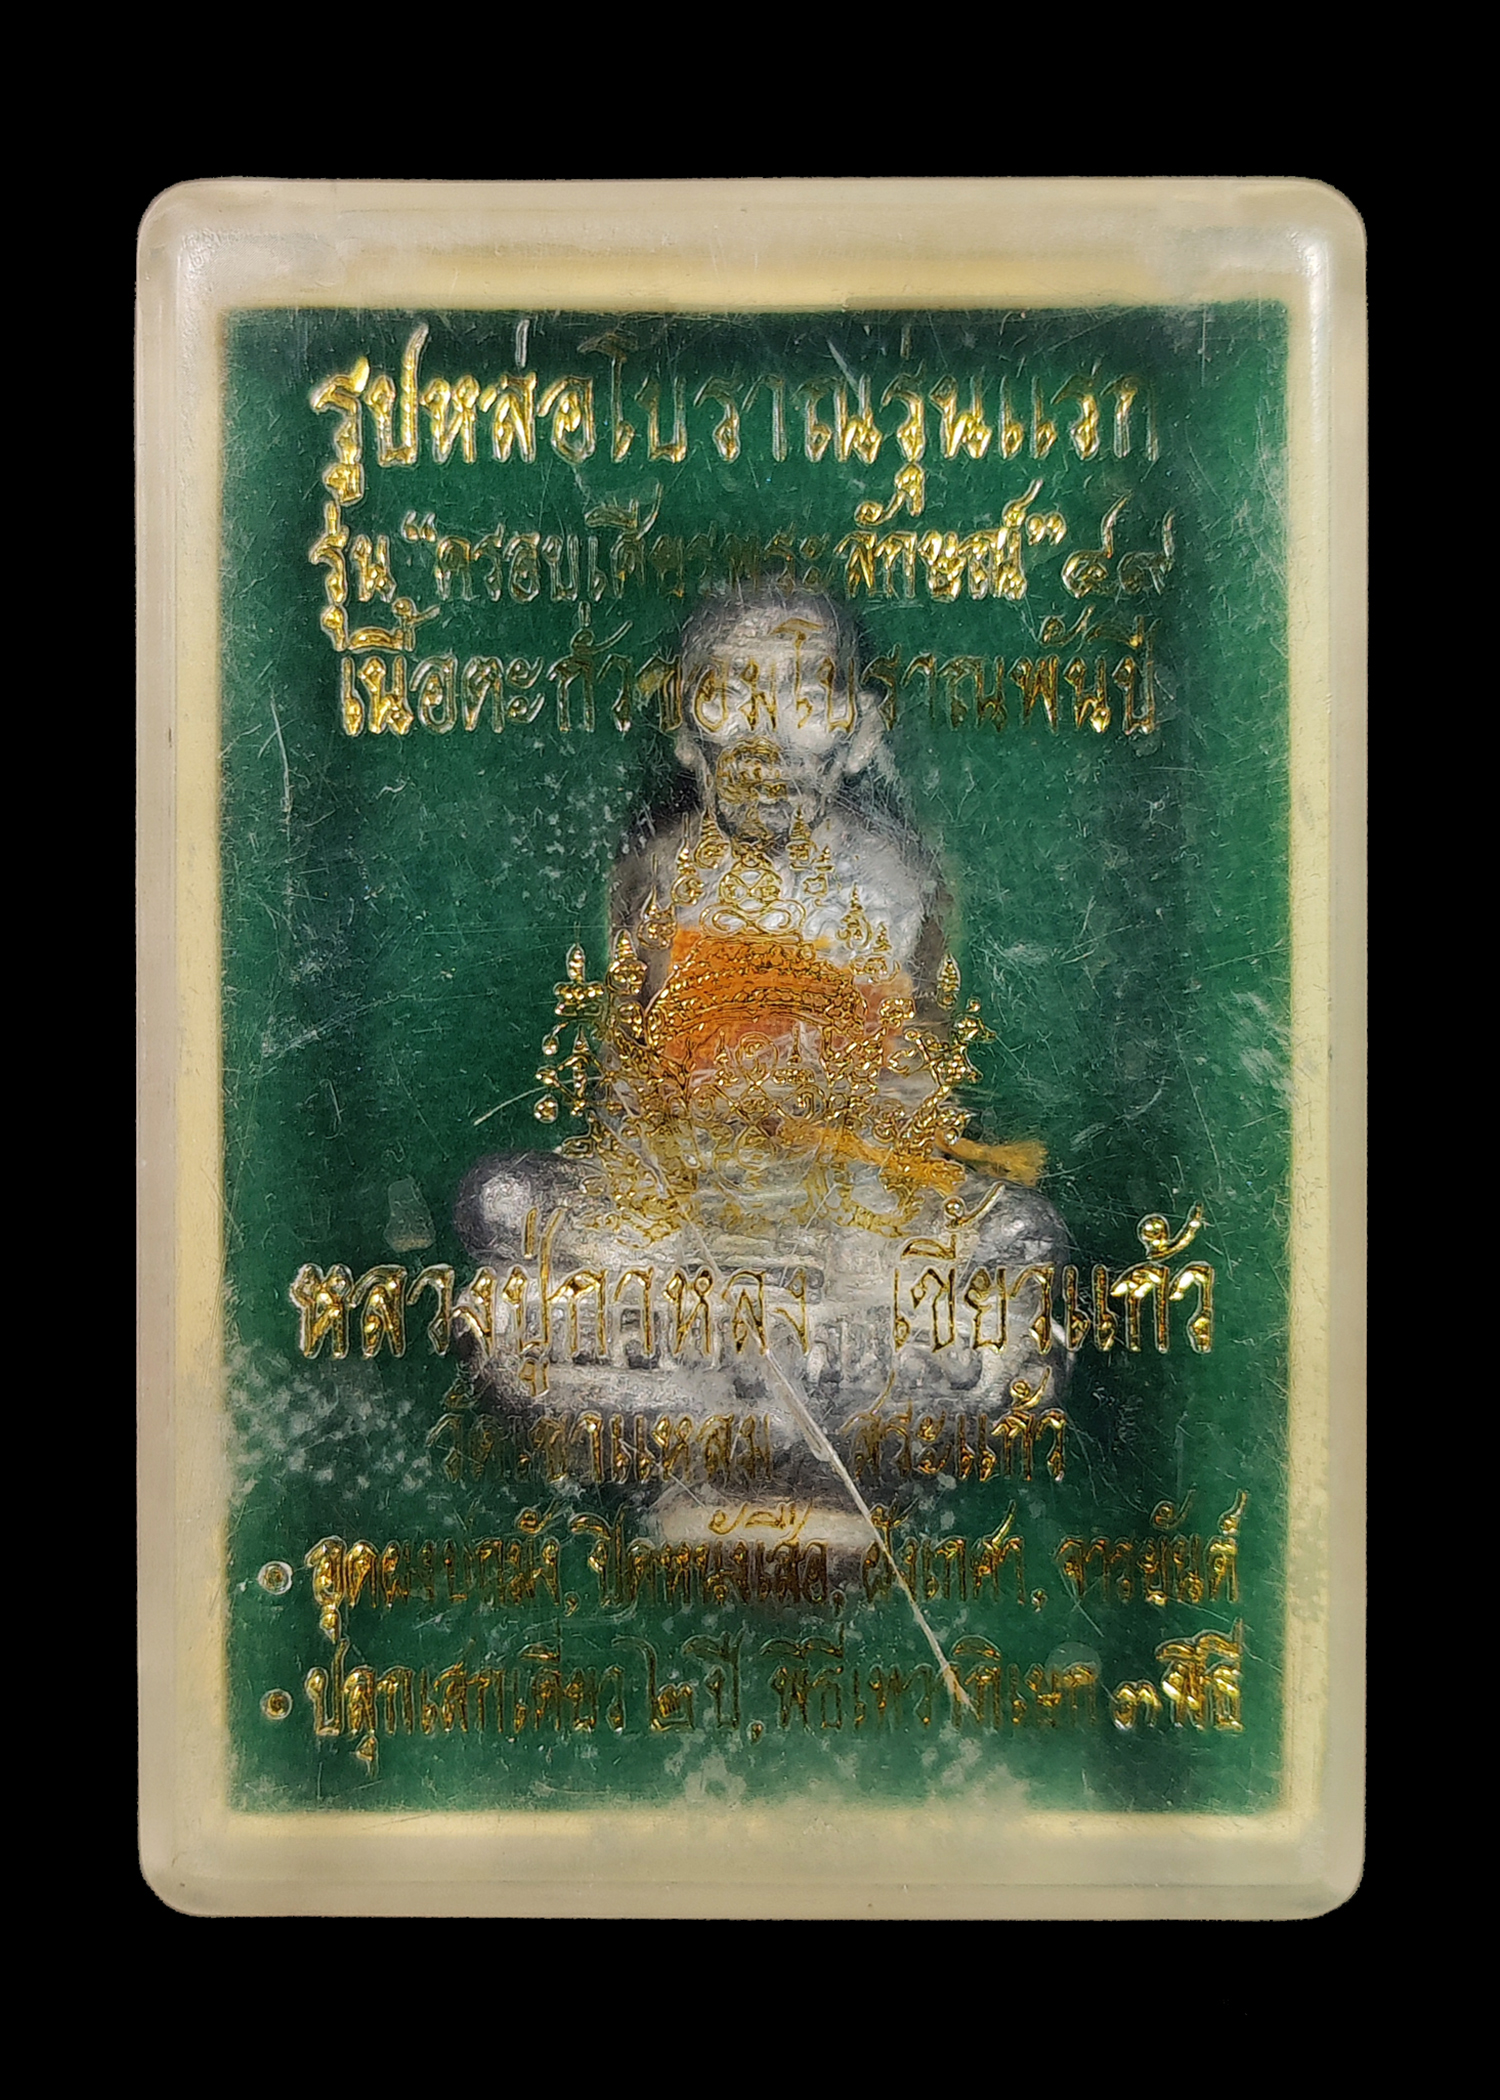 รูปหล่อโบราณรุ่นแรก
รุ่น “ครอบเศียรพระลักษณ์” ๔๙
เนื้อตะกั่วขอมโบราณพันปี
หลวงปู่กาหลง เขี้ยวแก้ว
วัดเขาแหลม สระแก้ว
• อุดผงปถมัง, ปิดหนังเสือ, ฝังเกศา, จารยันต์
• ปลุกเสกเดี่ยว ๒ ปี, พิธีเทวาภิเษก ๓ พิธี